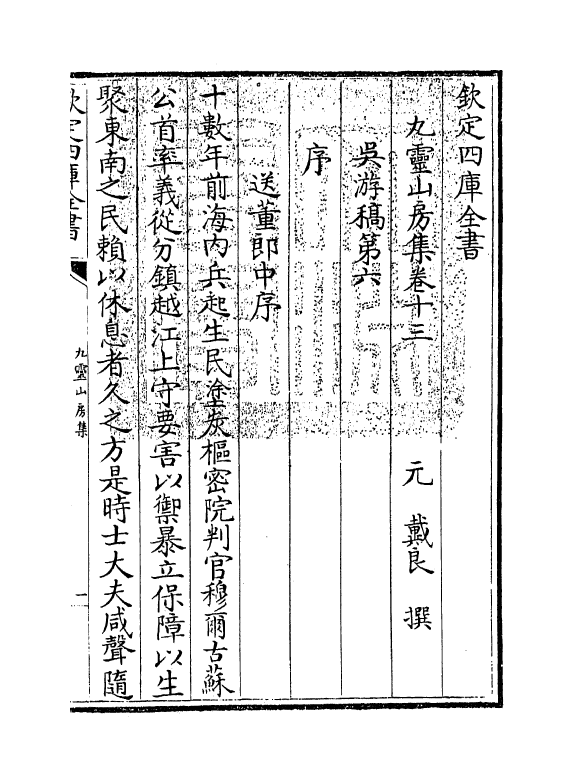 欽定四庫全書
九靈山房集卷十三
元 戴良 撰
吳游稿第六
序
送董郎中序
十數年前海内兵起生民塗炭樞密院判官穆爾古蘇
公首率義從分鎮越江上守要害以禦暴立保障以生
聚東南之民賴以休息者久之方是時士大夫咸聲隨
欽定四庫全書
九靈山房集
一